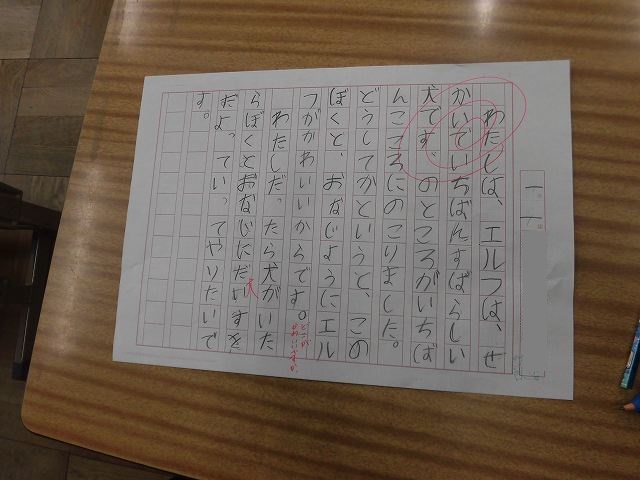 わたしは、エルフは、せ
かいでいちばんすばらしい
犬です。のところがいちば
んこころにのこりました。
どうしてかというと、この
ぼくと、おなじようにエル
フがかわいいからです。
どこが
わたしだったら犬がいた
らぼくとおなじにだいすき
だよっていってやりたいで
す。